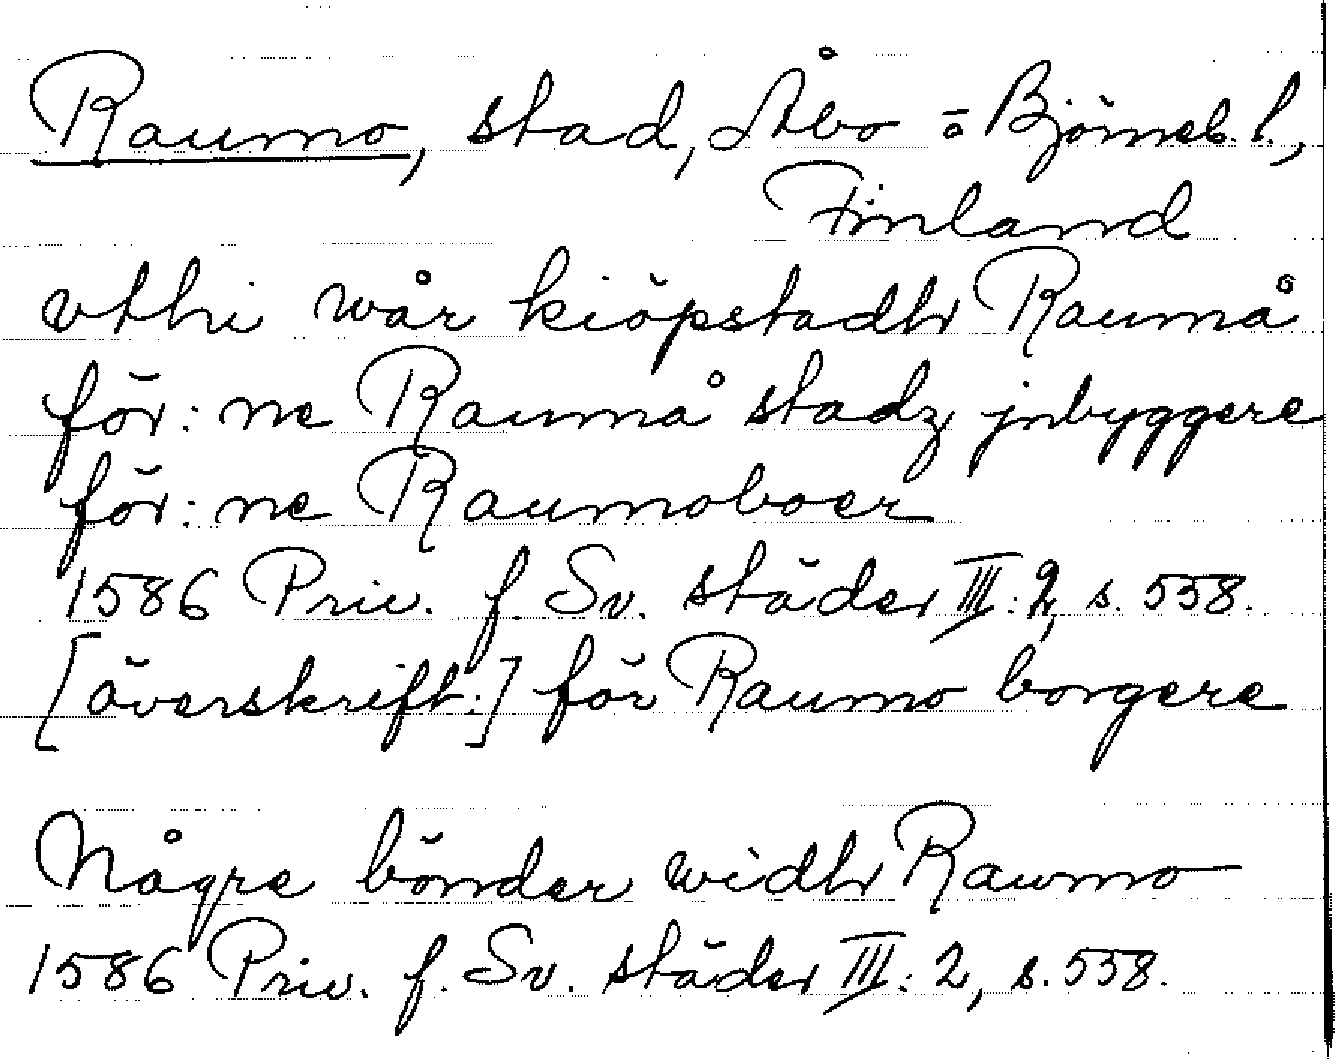 Raumo, stad, Åbo = Björneb. l.,
Finland
vthi wår kiöpstadh Raumå
för:ne Raumå stadz jnbyggere
för:ne Raumoboer
1586 Priv. f. Sv. städer III:2, s. 558.
[överskrift:] för Raumo borgere
Någre bönder widh Raumo
1586 Priv. f. Sv. städer III:2, s. 558.